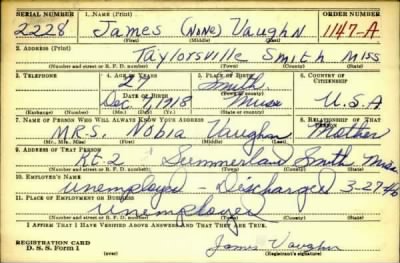 SERIAL NUMBER 1. NAME (Print) ORDER NUMBER
2228 James (None) Vaughn 1147-A
(First) (Middle) (Last)
2. ADDRESS (Print)
Taylorsville Smith Miss
(Number and street or R. F. D. number) (Town) (County) (State)
3. TELEPHONE 4. AGE IN YEARS 5. PLACE OF BIRTH 6. COUNTRY OF CITIZENSHIP
27 Smith
DATE OF BIRTH (Town or county)
Dec. 7, 1918 Miss U.S.A
(Exchange) (Number) (Mo.) (Day) (Yr.) (State or country)
7. NAME OF PERSON WHO WILL ALWAYS KNOW YOUR ADDRESS 8. RELATIONSHIP OF THAT PERSON
MRS. Nobia Vaughn Mother
(Mr., Mrs., Miss) (First) (Middle) (Last)
9. ADDRESS OF THAT PERSON
Rt. 2 Summerland Smith Miss
(Number and street or R. F. D. number) (Town) (County) (State)
10. EMPLOYER'S NAME
unemployed - Discharged 3-27-46
11. PLACE OF EMPLOYMENT OR BUSINESS
unemployed
(Number and street or R. F. D. number) (Town) (County) (State)
I AFFIRM THAT I HAVE VERIFIED ABOVE ANSWERS AND THAT THEY ARE TRUE.
REGISTRATION CARD
D. S. S. Form 1 (over) James Vaughn
(Registrant's signature)